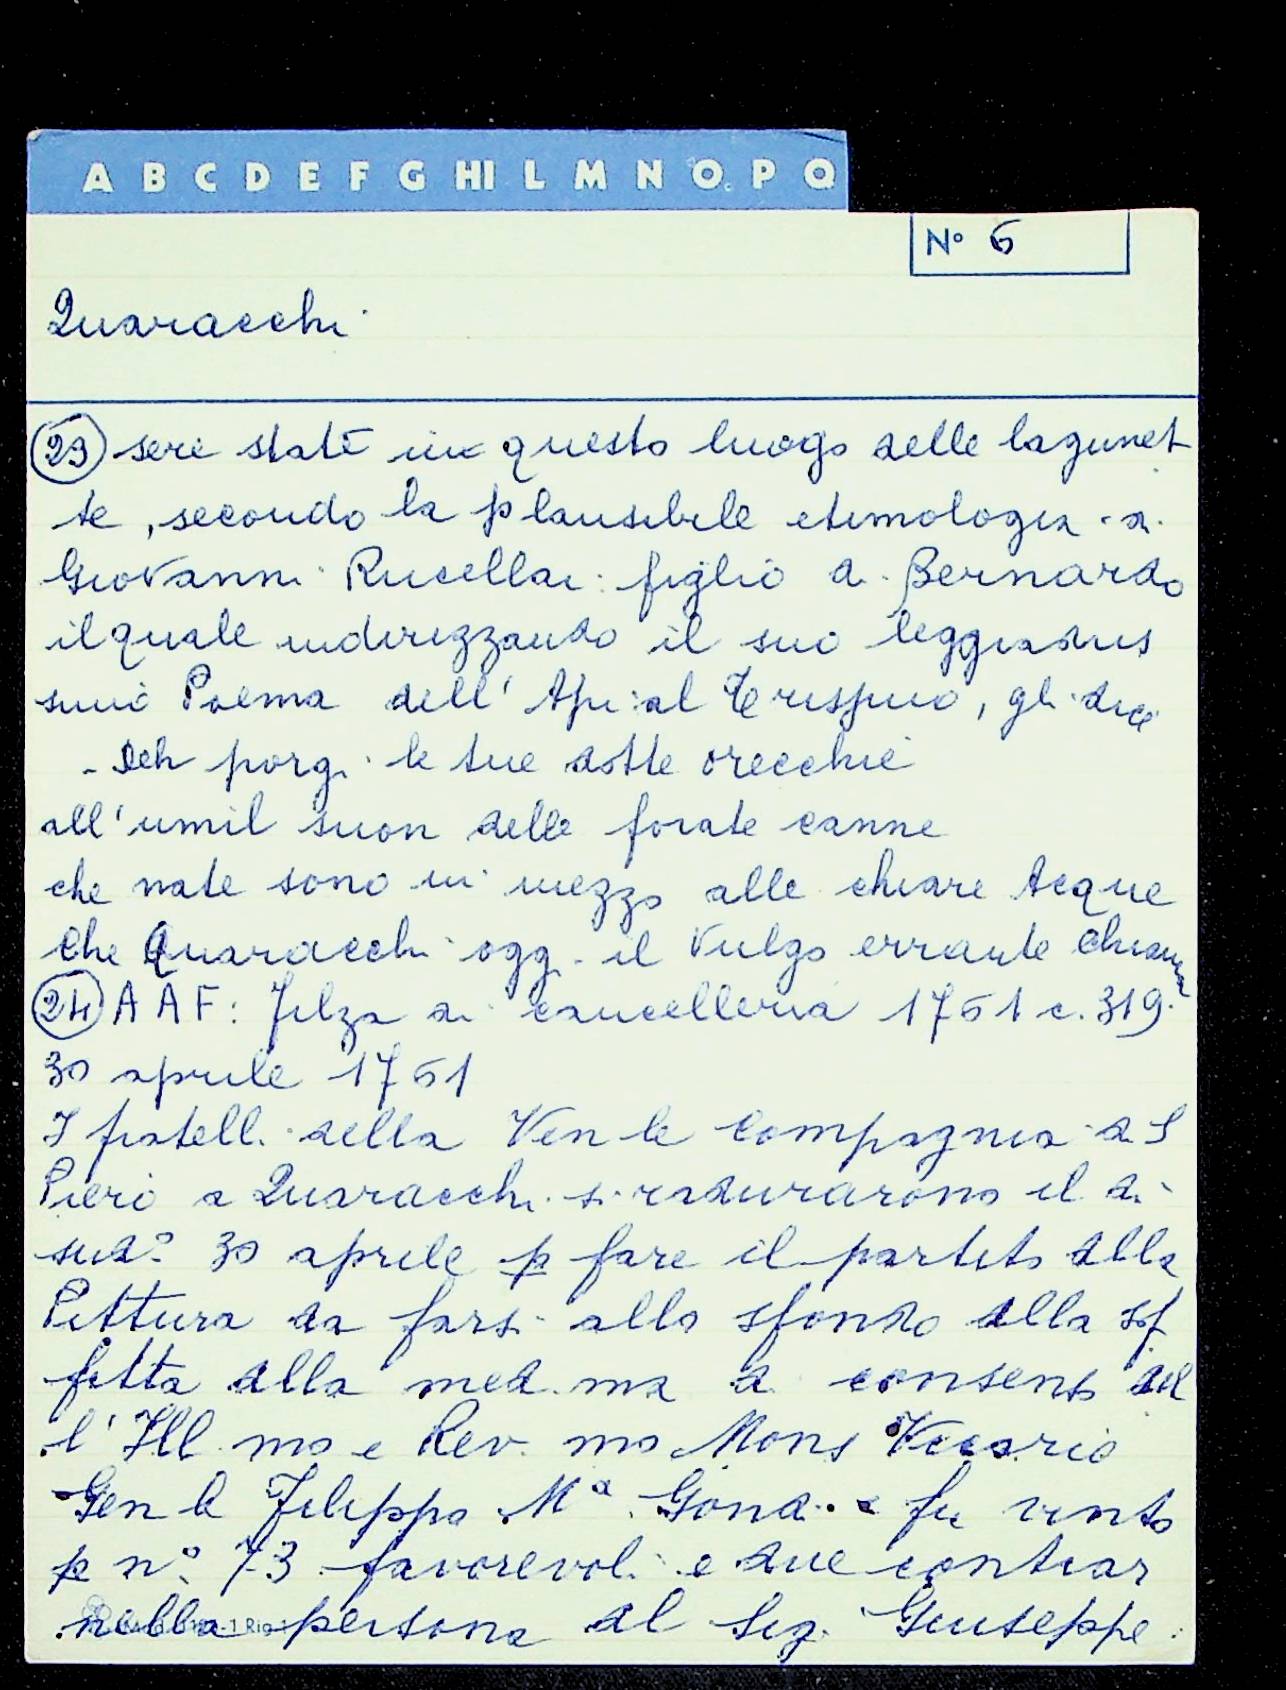 A B C D E F G HI L M N O P Q
N° 6
Quaracchi
(23) sere state in questo luogo delle lagunet
te, secondo la plausibile etimologia di
Giovanni Rucellai figlio di Bernardo
il quale indirizzando il suo leggiadris
simo Poema dell'Api al Trissino, gli dice
- Deh porgi le tue dotte orecchie
all'umil suon delle forate canne
che nate sono in mezzo alle chiare Acque
che Quaracchi oggi il Vulgo errante chiama
(24) A A F: Filza di cancelleria 1761 c. 319.
30 aprile 1761
I fratelli della Ven le Compagnia di S
Piero a Quaracchi si radunarono il dì
sud° 30 aprile p fare il partito della
Pittura da farsi allo sfondo della sof
fitta della med.ma di consenso del
l'Ill mo e Rev. mo Mons Vicario
Gen le Filippo Mª Gondi e fu vinto
p n° 73 favorevoli e due contrar
nella persona del Sig. Giuseppe